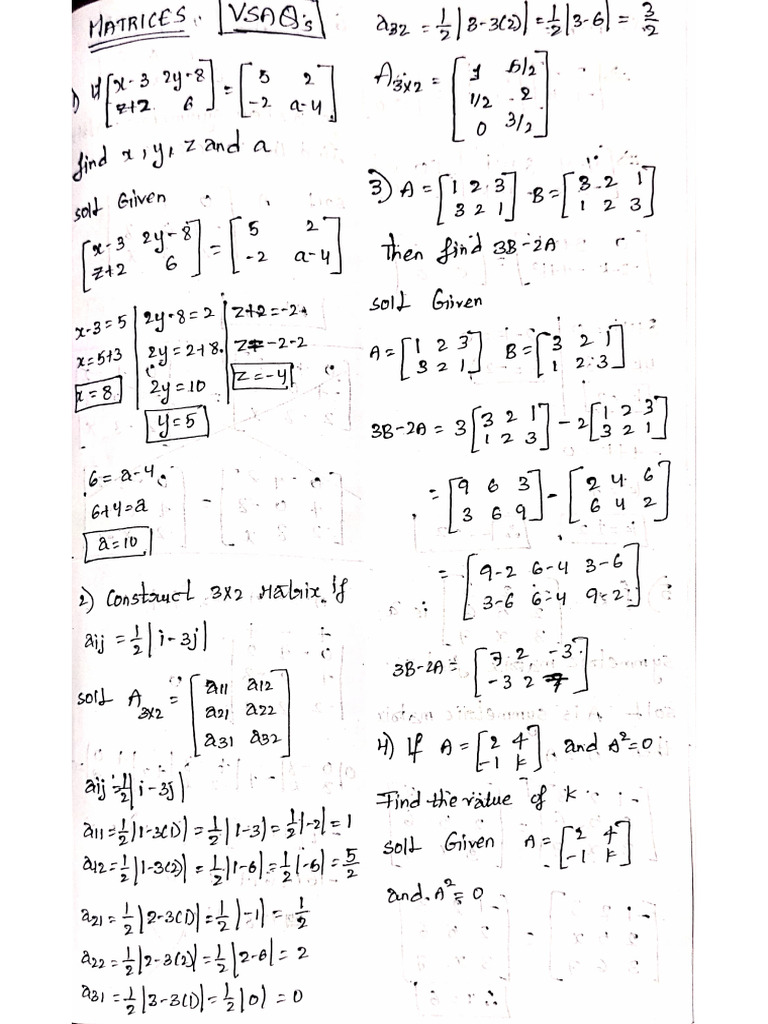 MATRICES. VSAQ's
1) If [x-3 2y-8] = [5 2]
[z+2 6] [-2 a-4]
find x, y, z and a
sol: Given
[x-3 2y-8] = [5 2]
[z+2 6] [-2 a-4]
x-3=5 | 2y-8=2 | z+2=-2
x=5+3 | 2y=2+8 | z=-2-2
x=8 | 2y=10 | z=-4
y=5
6=a-4
6+4=a
a=10
2) Construct 3x2 Matrix. if
aij = 1/2 |i-3j|
sol: A3x2 = [a11 a12]
[a21 a22]
[a31 a32]
aij = 1/2 |i-3j|
a11 = 1/2 |1-3(1)| = 1/2 |1-3| = 1/2 |-2| = 1
a12 = 1/2 |1-3(2)| = 1/2 |1-6| = 1/2 |-5| = 5/2
a21 = 1/2 |2-3(1)| = 1/2 |-1| = 1/2
a22 = 1/2 |2-3(2)| = 1/2 |2-6| = 2
a31 = 1/2 |3-3(1)| = 1/2 |0| = 0
a32 = 1/2 |3-3(2)| = 1/2 |3-6| = 3/2
A3x2 = [1 5/2]
[1/2 2]
[0 3/2]
3) A = [1 2 3] B = [3 2 1]
[3 2 1] [1 2 3]
then find 3B-2A
sol: Given
A = [1 2 3] B = [3 2 1]
[3 2 1] [1 2 3]
3B-2A = 3 [3 2 1] - 2 [1 2 3]
[1 2 3] [3 2 1]
= [9 6 3] - [2 4 6]
[3 6 9] [6 4 2]
= [9-2 6-4 3-6]
[3-6 6-4 9-2]
3B-2A = [7 2 -3]
[-3 2 7]
4) If A = [2 4] and A²=0
[-1 k]
Find the value of k
sol: Given A = [2 4]
[-1 k]
and A² = 0